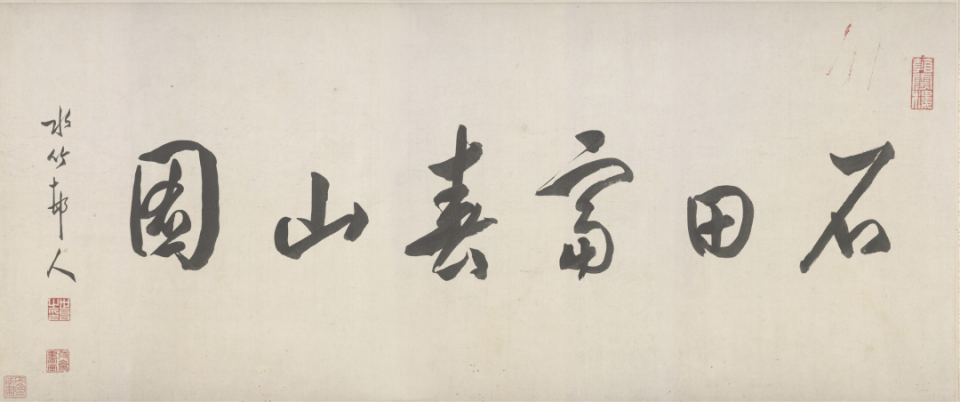 石田富春山圖
水竹邨人